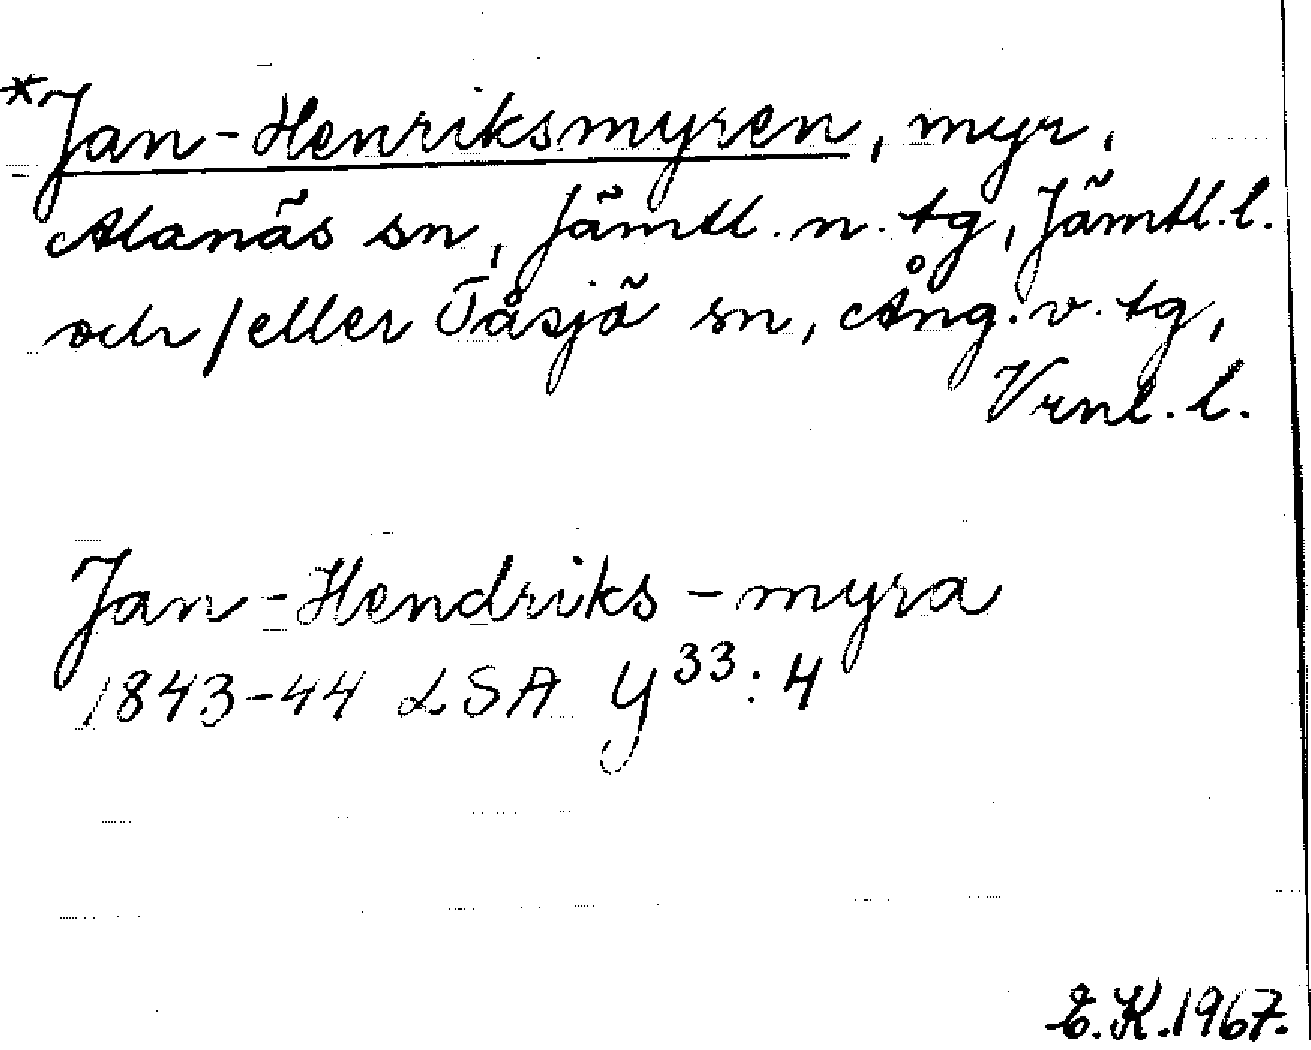 *Jan-Henriksmyren, myr,
Alanäs sn, Jämtl. n. tg, Jämtl. l.
och/eller Tåsjö sn, Ång. v. tg,
Vrnl. l.
Jan-Hendriks-myra
1843-44 LSA Y³³:4
E.K.1967.